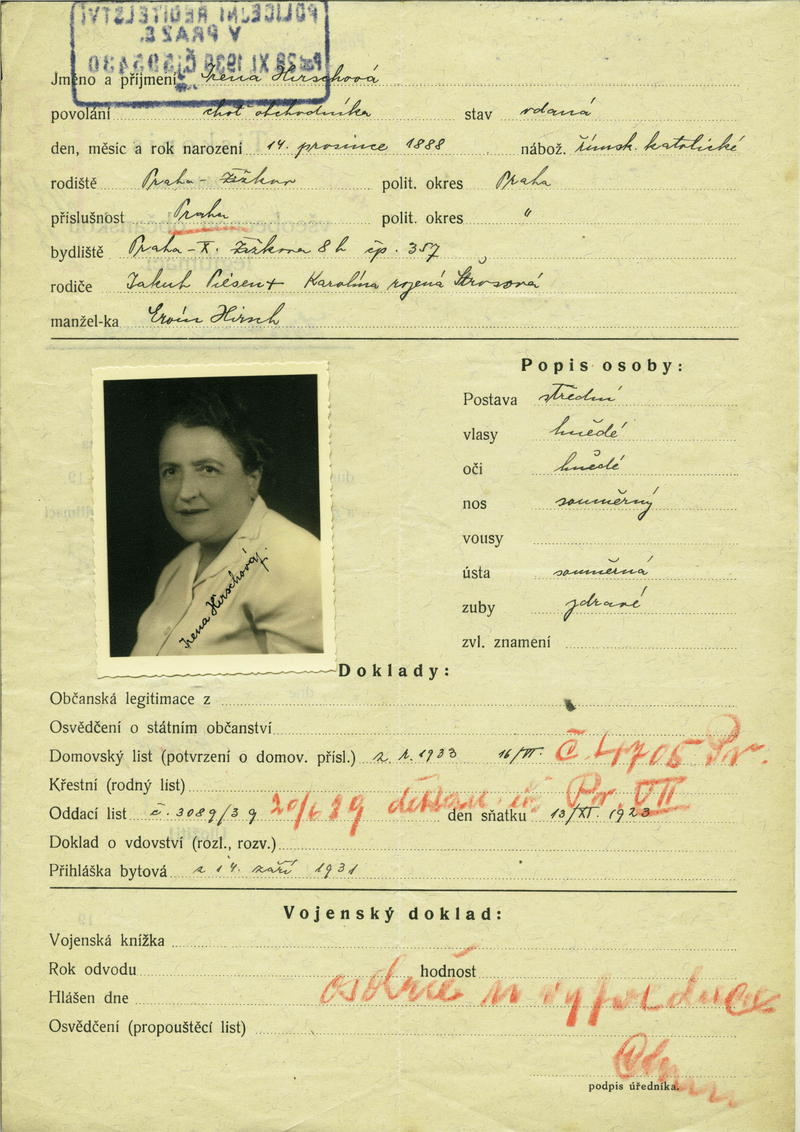 POLICEJNÍ ŘEDITELSTVÍ
V PRAZE
28. XI. 1939
Jméno a příjmení Irena Hirschová
povolání choť obchodníka stav vdaná
den, měsíc a rok narození 14. prosince 1888 nábož. římsk. katolické
rodiště Praha - Žižkov polit. okres Praha
příslušnost Praha polit. okres "
bydliště Praha - X. Žižkova 8 b čp. 357
rodiče Jakub Karolína rozená
manžel-ka Ervín Hirsch
Popis osoby:
Postava střední
vlasy hnědé
oči hnědé
nos souměrný
vousy
ústa souměrná
zuby zdravé
zvl. znamení
Irena Hirschová
Doklady:
Občanská legitimace z
Osvědčení o státním občanství
Domovský list (potvrzení o domov. přísl.) z r. 1933 16/VI. č. 41705 Pr.
Křestní (rodný list)
Oddací list č. 3089/39 den sňatku 13/XI. 1923 Pr. VII
Doklad o vdovství (rozl., rozv.)
Přihláška bytová z 14. září 1931
Vojenský doklad:
Vojenská knížka
Rok odvodu hodnost
Hlášen dne osobně
Osvědčení (propouštěcí list)
podpis úředníka.